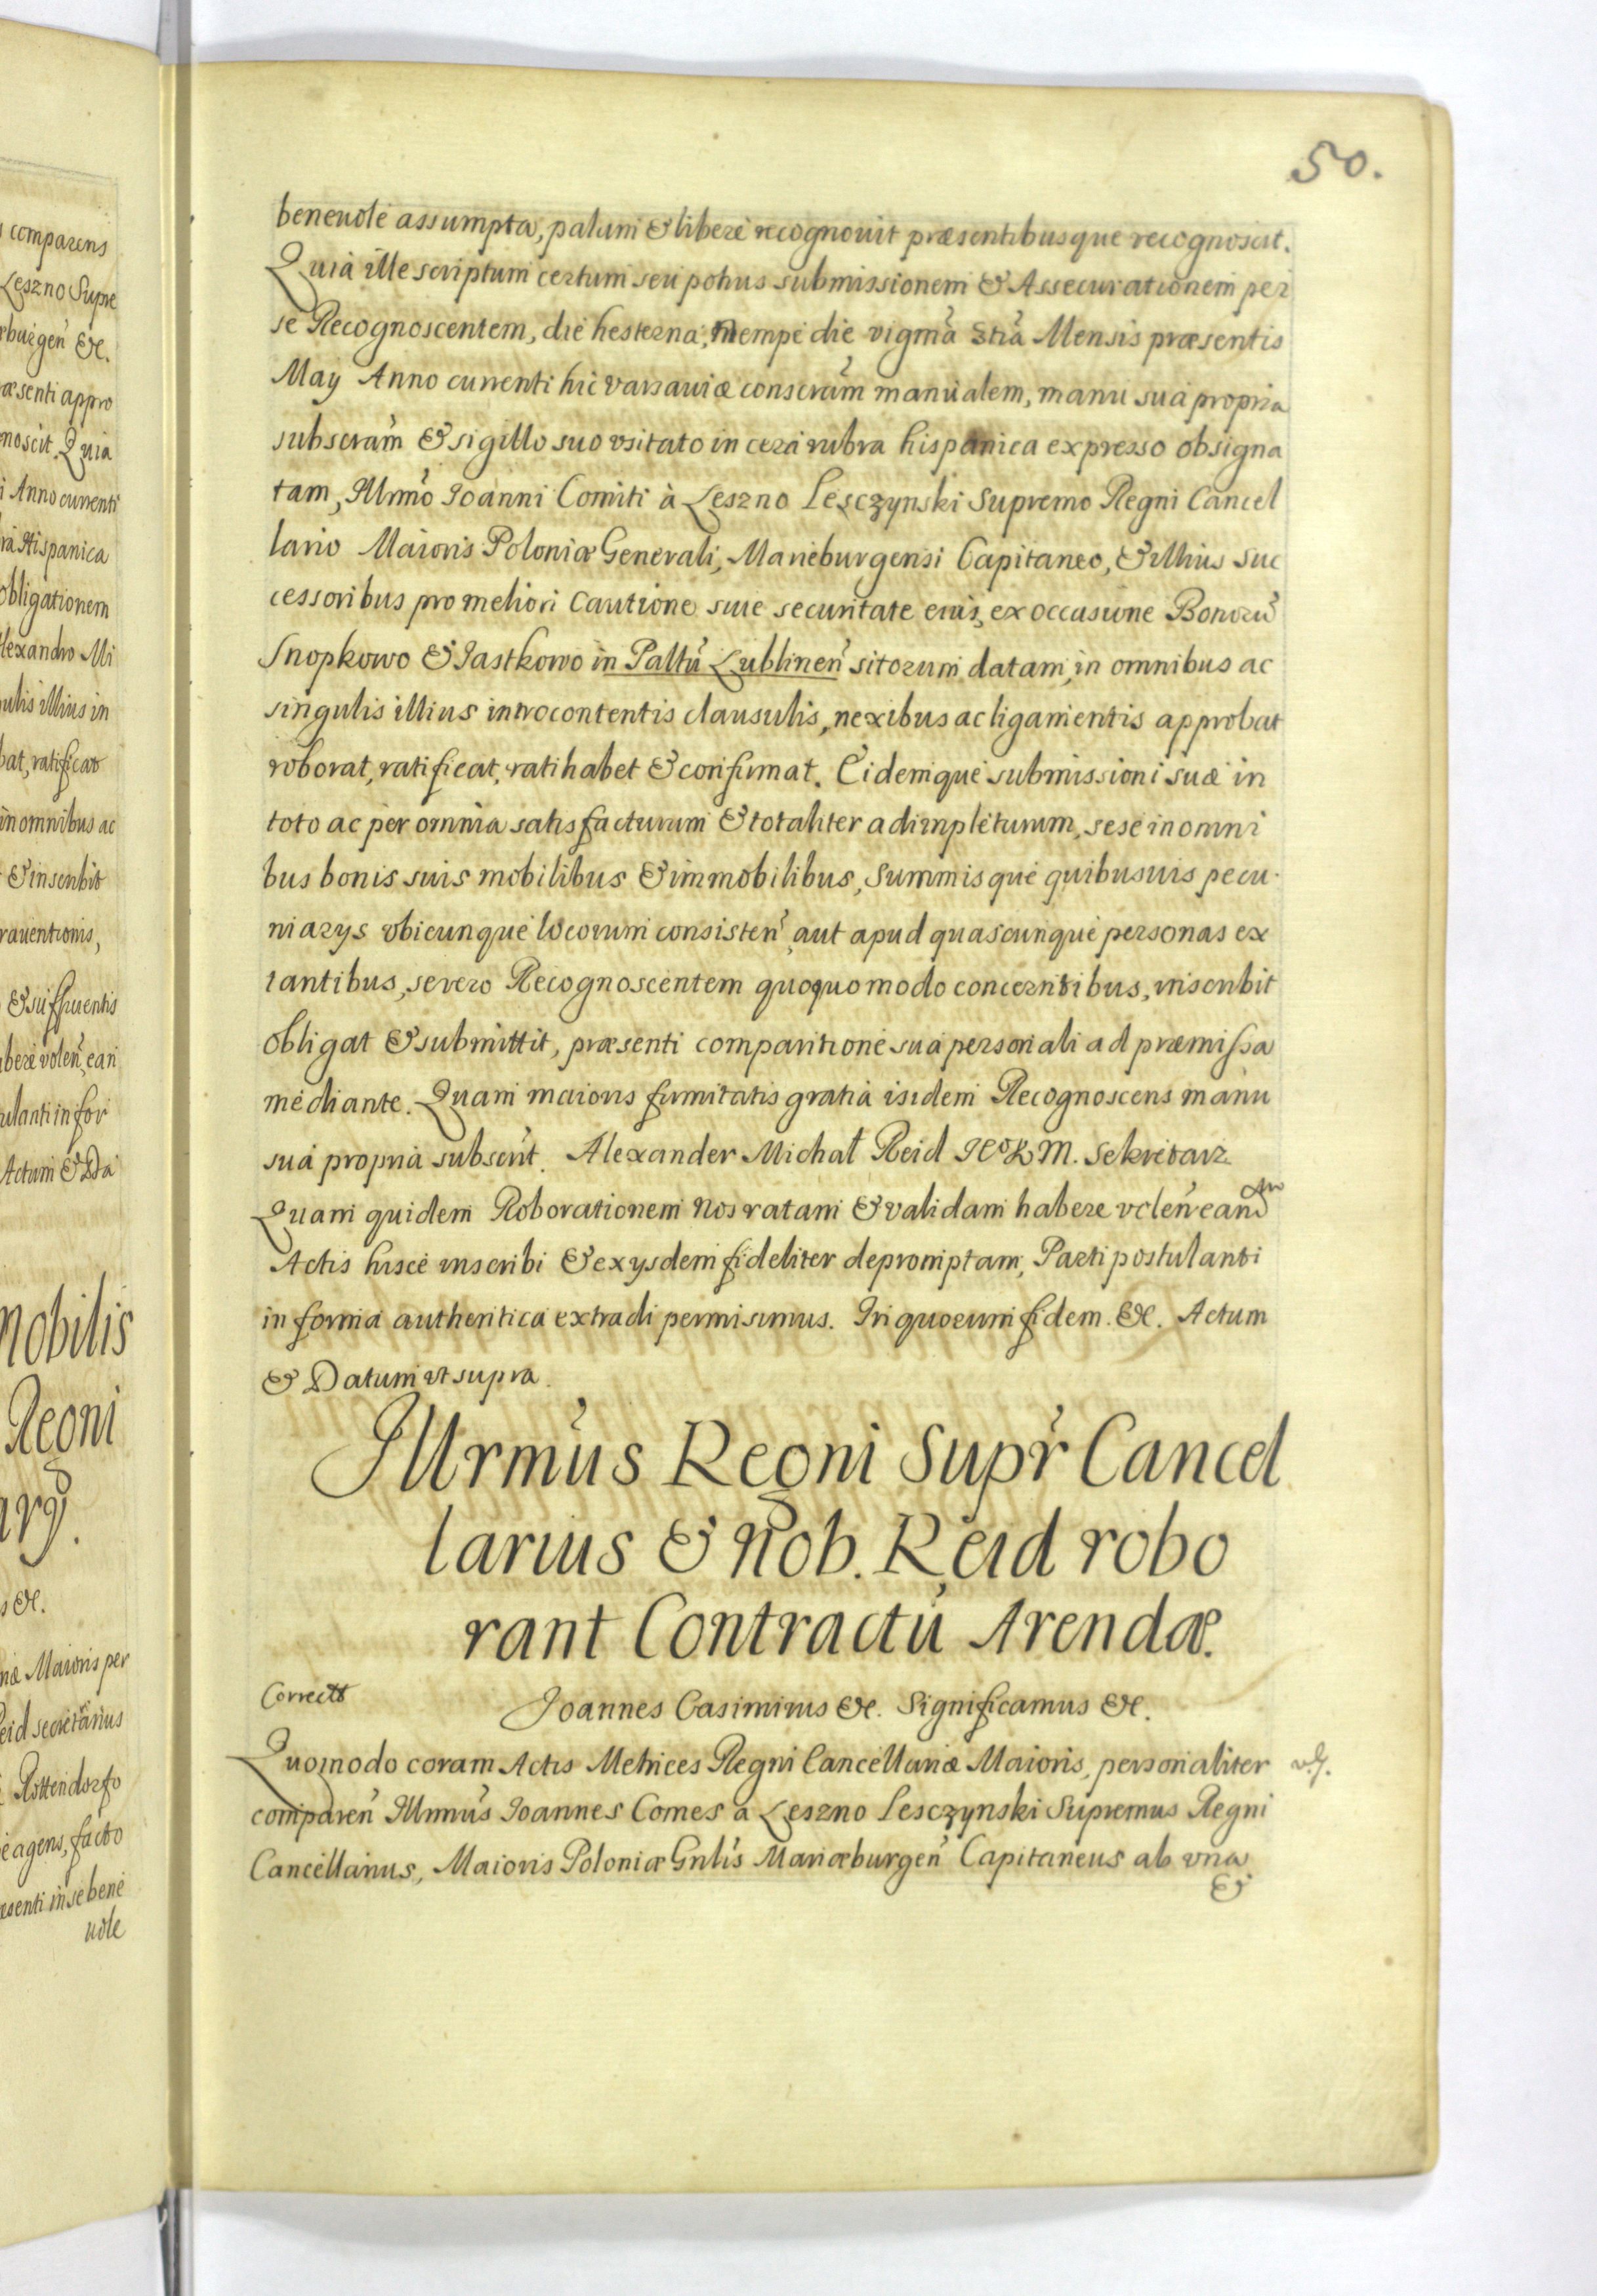 50.
beneuole assumpta, palam & libere recognouit præsentibusque recognoscit.
Quia ille scriptum certum seu potius submissionem & Assecurationem per
se Recognoscentem, die hesterna, nempe die vigma 3tia Mensis præsentis
May Anno currenti hic varsauiæ conscram manualem, manu sua propria
subscram & sigillo suo vsitato in cera rubra hispanica expresso obsigna
tam, Illrmo Ioanni Comiti à Leszno Lesczynski Supremo Regni Cancel
lario Maioris Poloniæ Generali, Marieburgensi Capitaneo, & illius suc
cessoribus pro meliori Cautione siue securitate eius, ex occasione Bonorũ
Snopkowo & Jastkowo in Paltũ Lublineñ sitorum datam, in omnibus ac
singulis illius introcontentis clausulis, nexibus ac ligamentis approbat
roborat, ratificat, ratihabet & confirmat. Eidemque submissioni suæ in
toto ac per omnia satisfacturum & totaliter adimpleturum, sese in omni
bus bonis suis mobilibus & immobilibus, Summisque quibusuis pecu-
niarys vbicunque locorum consisteñ, aut apud quascunque personas ex
tantibus, se vero Recognoscentem quoquo modo concerntibus, inscribit
obligat & submittit, præsenti comparitione sua personali ad præmissa
mediante. Quam maioris firmitatis gratia isidem Recognoscens manu
sua propria subscrit. Alexander Michał Reid JeoKM. Sekretarz
Quam quidem Roborationem Nos ratam & validam habere voleñ eam
Actis hisce inscribi & ex ysdem fideliter depromptam, Parti postulanti
in forma authentica extradi permisimus. In quorum fidem &c. Actum
& Datum vt supra.
Illrmus Regni Supr Cancel
larius & Nob. Reid robo
rant Contractũ Arendæ.
Correct
Joannes Casimirus &c. Significamus &c.
Quomodo coram Actis Metrices Regni Cancellariæ Maioris, personaliter
compareñ Illrmus Joannes Comes a Leszno Lesczynski Supremus Regni
Cancellarius, Maioris Poloniæ Gnlis Mariæburgeñ Capitaneus ab vna
&
comparens
Leszno Supre
burgeñ &c.
æsenti appro
noscit. Quia
Anno currenti
ra Hispanica
obligationem
Alexandro Mi
ulis illius in
bat, ratificat
in omnibus ac
& inscribit
rauentionis,
& sufficientis
bere voleñ, eam
ulanti in for
Actum & Da
nobilis
Regni
ary.
s &c.
iæ Maioris per
eid secretarius
Rottendorfo
e agens, facto
esenti in se bene
uole